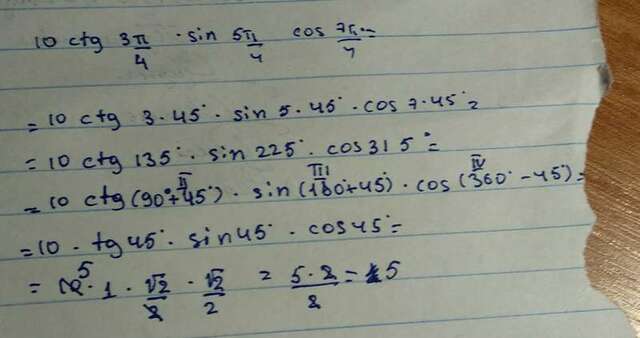 10 ctg 3π/4 · sin 5π/4 cos 7π/4 =
= 10 ctg 3·45° · sin 5·45° · cos 7·45° =
= 10 ctg 135° · sin 225° · cos 315° =
= 10 ctg (90°+45°) · sin (180°+45°) · cos (360° - 45°) =
II III IV
= 10 · tg 45° · sin 45° · cos 45° =
= 10 5 · 1 · √2/2 · √2/2 = 5·2/2 = 5